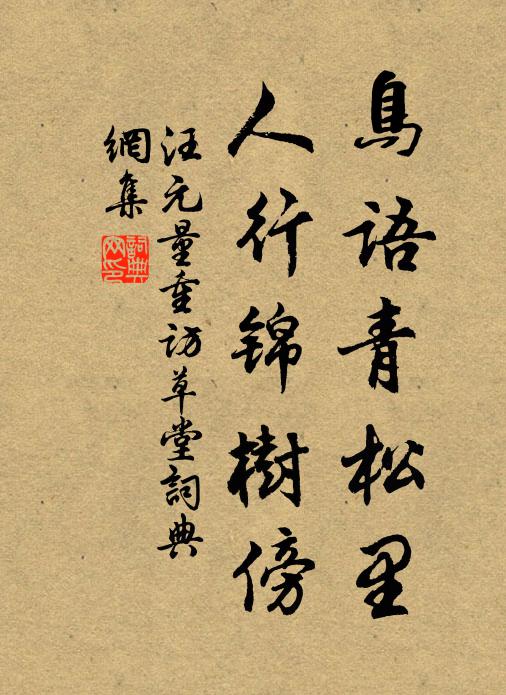 鳥語青松里
人行錦樹傍
汪元量重访草堂詞典
網集
詞典
网印